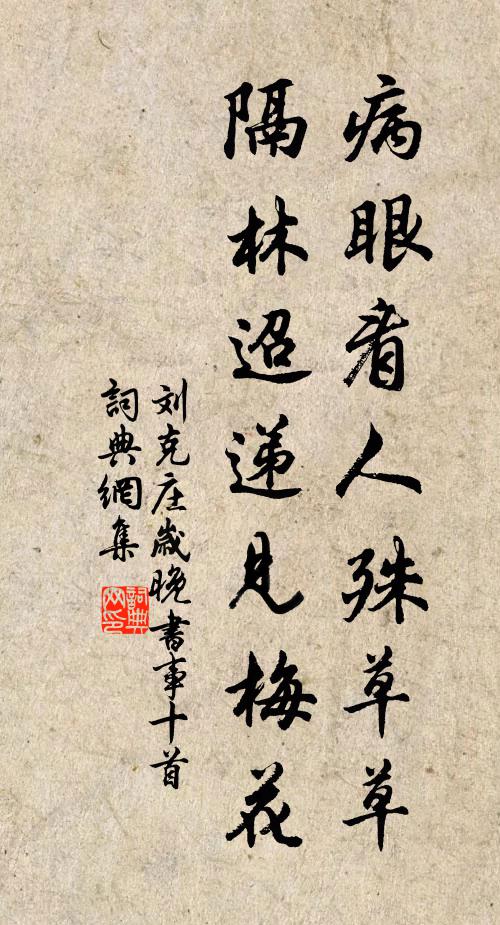 病眼看人殊草草
隔林迢递见梅花
刘克庄岁晚书事十首
詞典網集
詞典网印